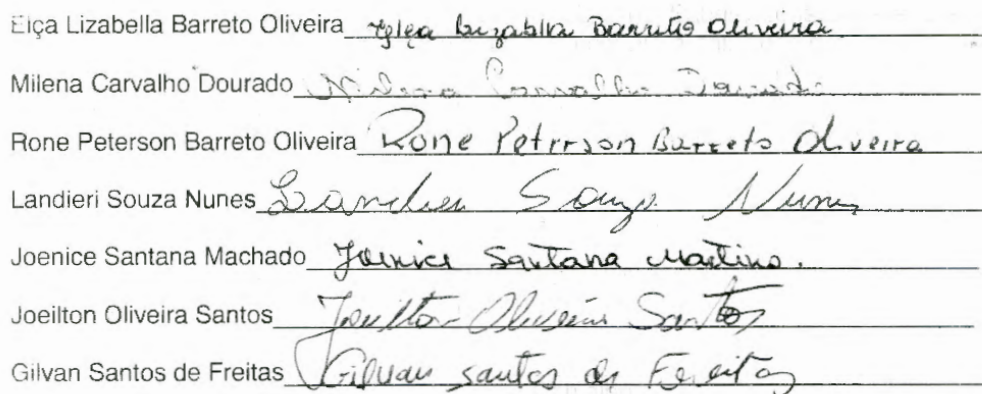 Elça Lizabella Barreto Oliveira Elça Lizablla Barreto Oliveira
Milena Carvalho Dourado Milena Carvalho Dourado
Rone Peterson Barreto Oliveira Rone Peterson Barreto Oliveira
Landieri Souza Nunes Landieri Souza Nunes
Joenice Santana Machado Joenice Santana Martins.
Joeilton Oliveira Santos Joeilton Oliveira Santos
Gilvan Santos de Freitas Gilvan santos de Freitas